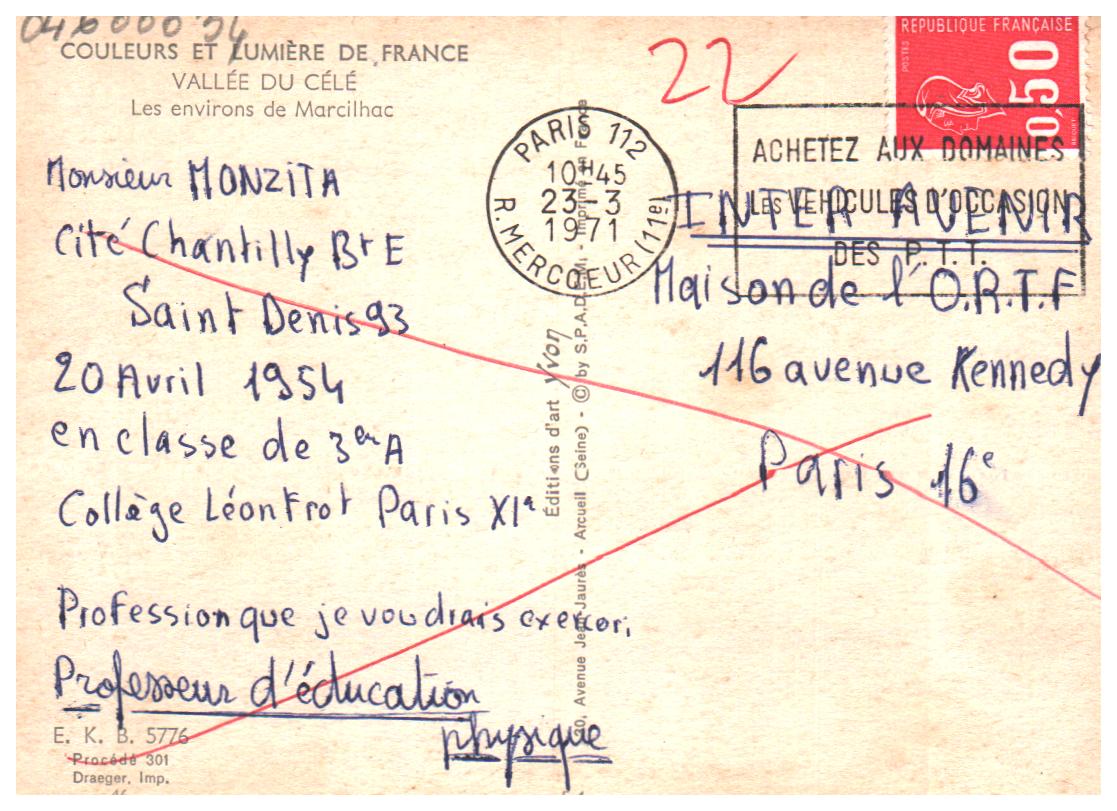 046000 54
COULEURS ET LUMIÈRE DE FRANCE
VALLÉE DU CÉLÉ
Les environs de Marcilhac
Monsieur MONZITA
Cité Chantilly Bt E
Saint Denis 93
20 Avril 1954
en classe de 3em A
Collège Léon Frot Paris XIe
Profession que je voudrais exercer:
Professeur d'éducation
physique
E. K. B. 5776
Procédé 301
Draeger, Imp.
46
Éditions d'art Yvon
20, Avenue Jean Jaurès - Arcueil (Seine) - © by S.P.A.D.E.M. - Imprimé en France
22
REPUBLIQUE FRANÇAISE
POSTES
0,50
BEQUET
PARIS 112
10H45
23-3
1971
R. MERCOEUR (11e)
ACHETEZ AUX DOMAINES
LES VÉHICULES D'OCCASION
DES P.T.T.
INTER AVENIR
Maison de l'O.R.T.F
116 avenue Kennedy
Paris 16e